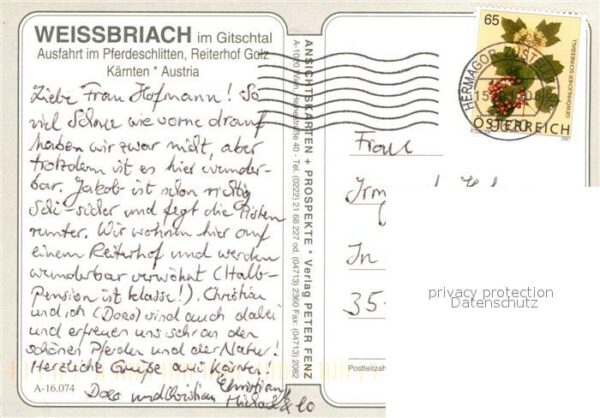 WEISSBRIACH im Gitschtal
Ausfahrt im Pferdeschlitten, Reiterhof Golz
Kärnten * Austria
Liebe Frau Hofmann! So
viel Schnee wie vorne drauf
haben wir zwar nicht, aber
trotzdem ist es hier wunder-
bar. Jakob ist schon richtig
Ski-sicher und fegt die Pisten
runter. Wir wohnen hier auf
einem Reiterhof und werden
wunderbar verwöhnt (Halb-
Pension ist klasse!). Christian
und ich (Doro) sind auch dabei
und erfreuen uns sehr an den
schönen Pferden und der Natur!
Herzliche Grüße aus Kärnten!
Doro und Christian
Michael & Co
A-16.074
ANSICHTSKARTEN + PROSPEKTE * Verlag PETER FENZ
40 - Tel. (0222) 21 68 227 od. (04713) 2390 Fax: (04713) 2082
65
GEWÖHNLICHER SCHNEEBALL
ÖSTERREICH
HERMAGOR
Frau
In
35
Postleitzahl
privacy protection
Datenschutz